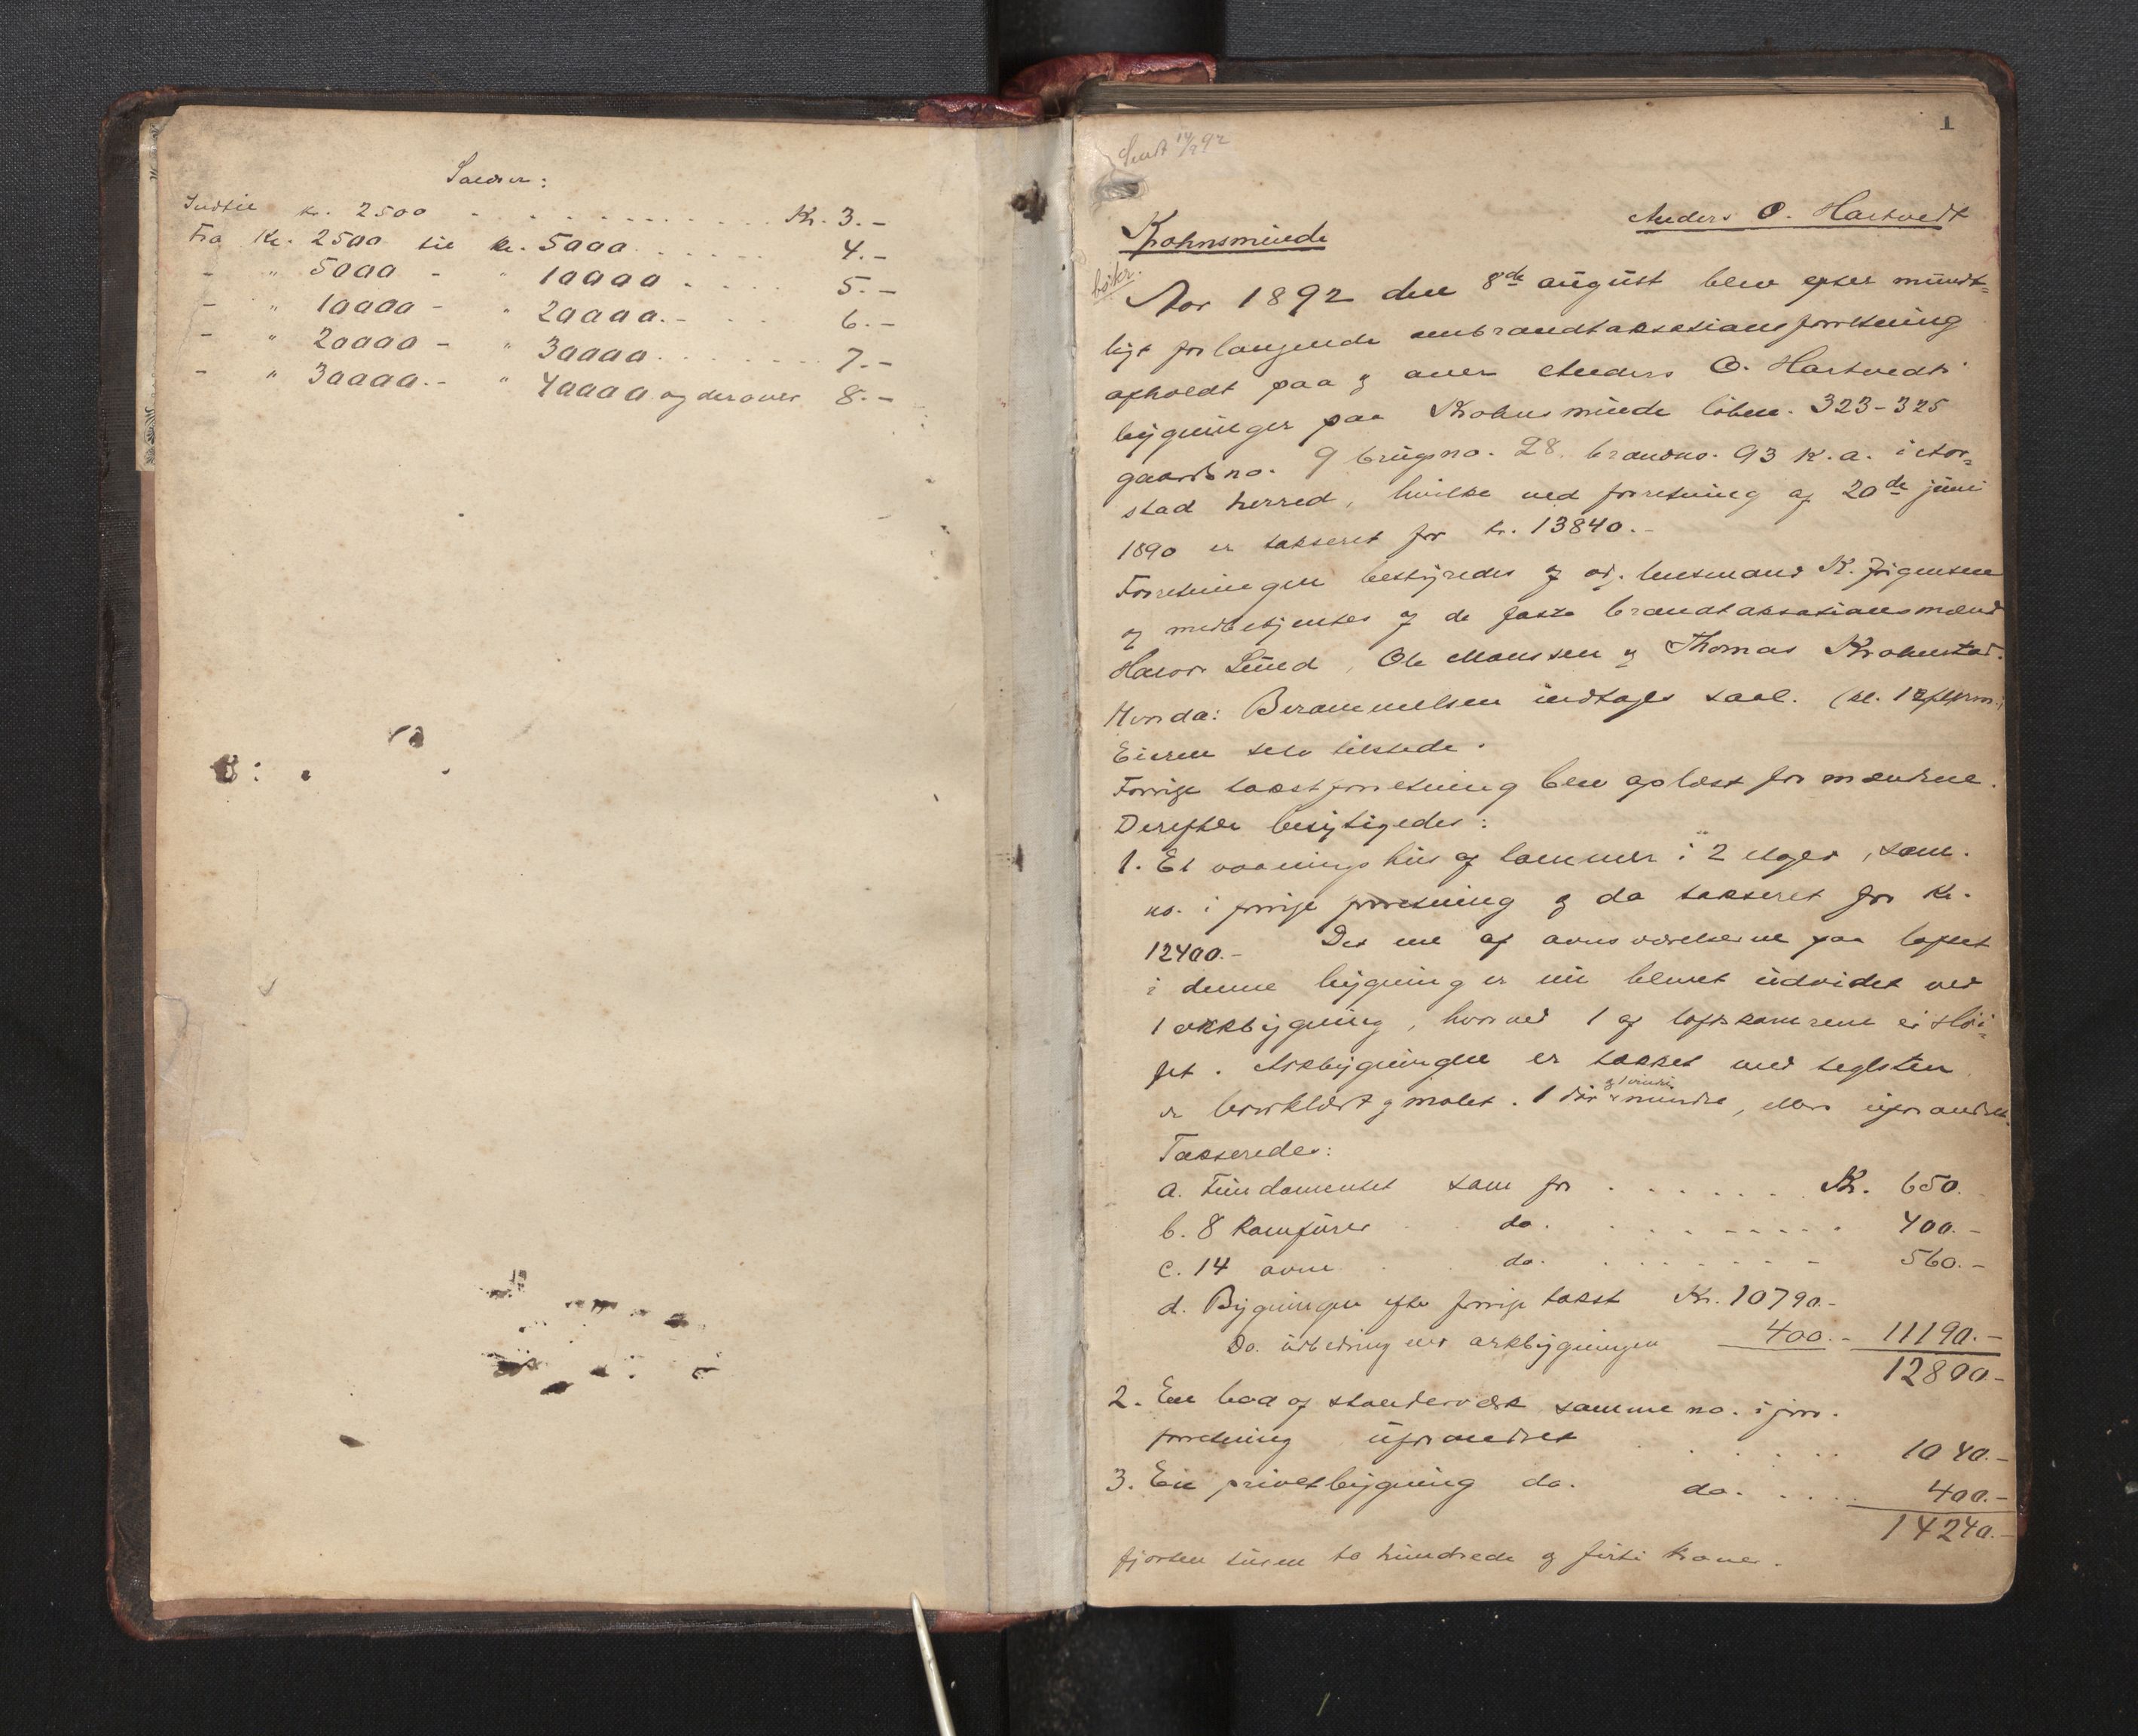 Satser:
Indtil kr. 2500 . . . . . . . . . . Kr. 3.-
Fra Kr. 2500 til kr. 5000 . . . . . 4.-
- " 5000 - " 10000 . . . . 5.-
- " 10000 - " 20000.- . . 6.-
- " 20000 - " 30000 . . . . . . 7.-
- " 30000.- " 40000 og derover 8.-
1
Sendt 14/9 92
Krohnsminde
Anders O. Hartvedt
Aar 1892 den 8de august blev efter mundt=
ligt forlangende ombrandtaksationsforretning
afholdt paa og over Anders O. Hartvedts
bygninger paa Krohnsminde löbene. 323-325
gaardsno. 9 brugsno. 28. brandno. 93 K.a. i Aar=
stad herred, hvilke ved forretning af 20de juni
1890 er takseret for kr. 13840.-
Forretningen bestyredes af lensmand K. Jörgensen
og medbetjentes af de faste brandtaksationsmænd
Halvor Lund, Ole Monssen og Thomas Krohnstad.
Hvorda: Berammelsen indtages saal.
Eieren selv tilstede.
Forrige takstforretning blev oplæst for mændene.
Derefter besigtigedes:
1. Et vaaningshus af tømmer i 2 etager, sam.
no. i forrige forretning og da takseret for Kr.
12400.- Det ene af ovnsværelserne paa loftet
i denne bygning er nu blevet udvidet ved
1 arkbygning, hvorved 1 af loftskamrene er slöi-
fet. Arkbygningen er tækket med teglsten
er bordklædt og malet. 1 dör og 1 vindu mindre, ellers uforandret.
Takseredes:
a. Fundamentet som för . . . . . . Kr. 650.
b. 8 komfurer . . do. . . . . . . . 400.-
c. 14 ovne . . do. . . . . . . . 560.-
d. Bygningen efter forrige takst Kr. 10790.-
Do. udbedring ved arkbygningen 400.- 11190.-
12800.-
2. En bod af stenderværk samme no. i forr.
forretning uforandret . . . . . 1040.-
3. En privetbygning do. do. . . . . 400.-
14240.-
fjorten tusen to hundrede og firti kroner.